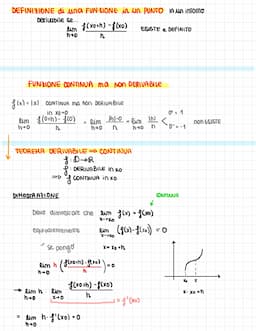 DEFINIZIONE di una FUNZIONE in un PUNTO in un intorno
derivabile se...
lim h→0 f(x0+h) - f(x0) / h ESISTE e DEFINITO
FUNZIONE CONTINUA ma NON DERIVABILE
f(x) = |x| CONTINUA ma NON DERIVABILE
in x0=0
lim h→0 f(0+h) - f(0) / h = lim h→0 |h|-0 / h = lim h→0 |h| / h 0⁺ = 1 0⁻ = -1 non ESISTE
TEOREMA DERIVABILE ⇒ CONTINUA
f: D→R
f DERIVABILE in x0
⇒ f CONTINUA in x0
DIMOSTRAZIONE
CONTINUA
Devo dimostrare che lim x→x0 f(x) = f(x0)
Equivalentemente lim x→x0 (f(x) - f(x0)) = 0
se pongo x = x0 + h
lim h→0 h (f(x0+h) - f(x0) / h) = 0
→ lim h→0 h · lim f(x0+h) - f(x0) / h
= f'(x0)
= lim h→0 h · f'(x0) = 0
x0 x
x = x0 + h